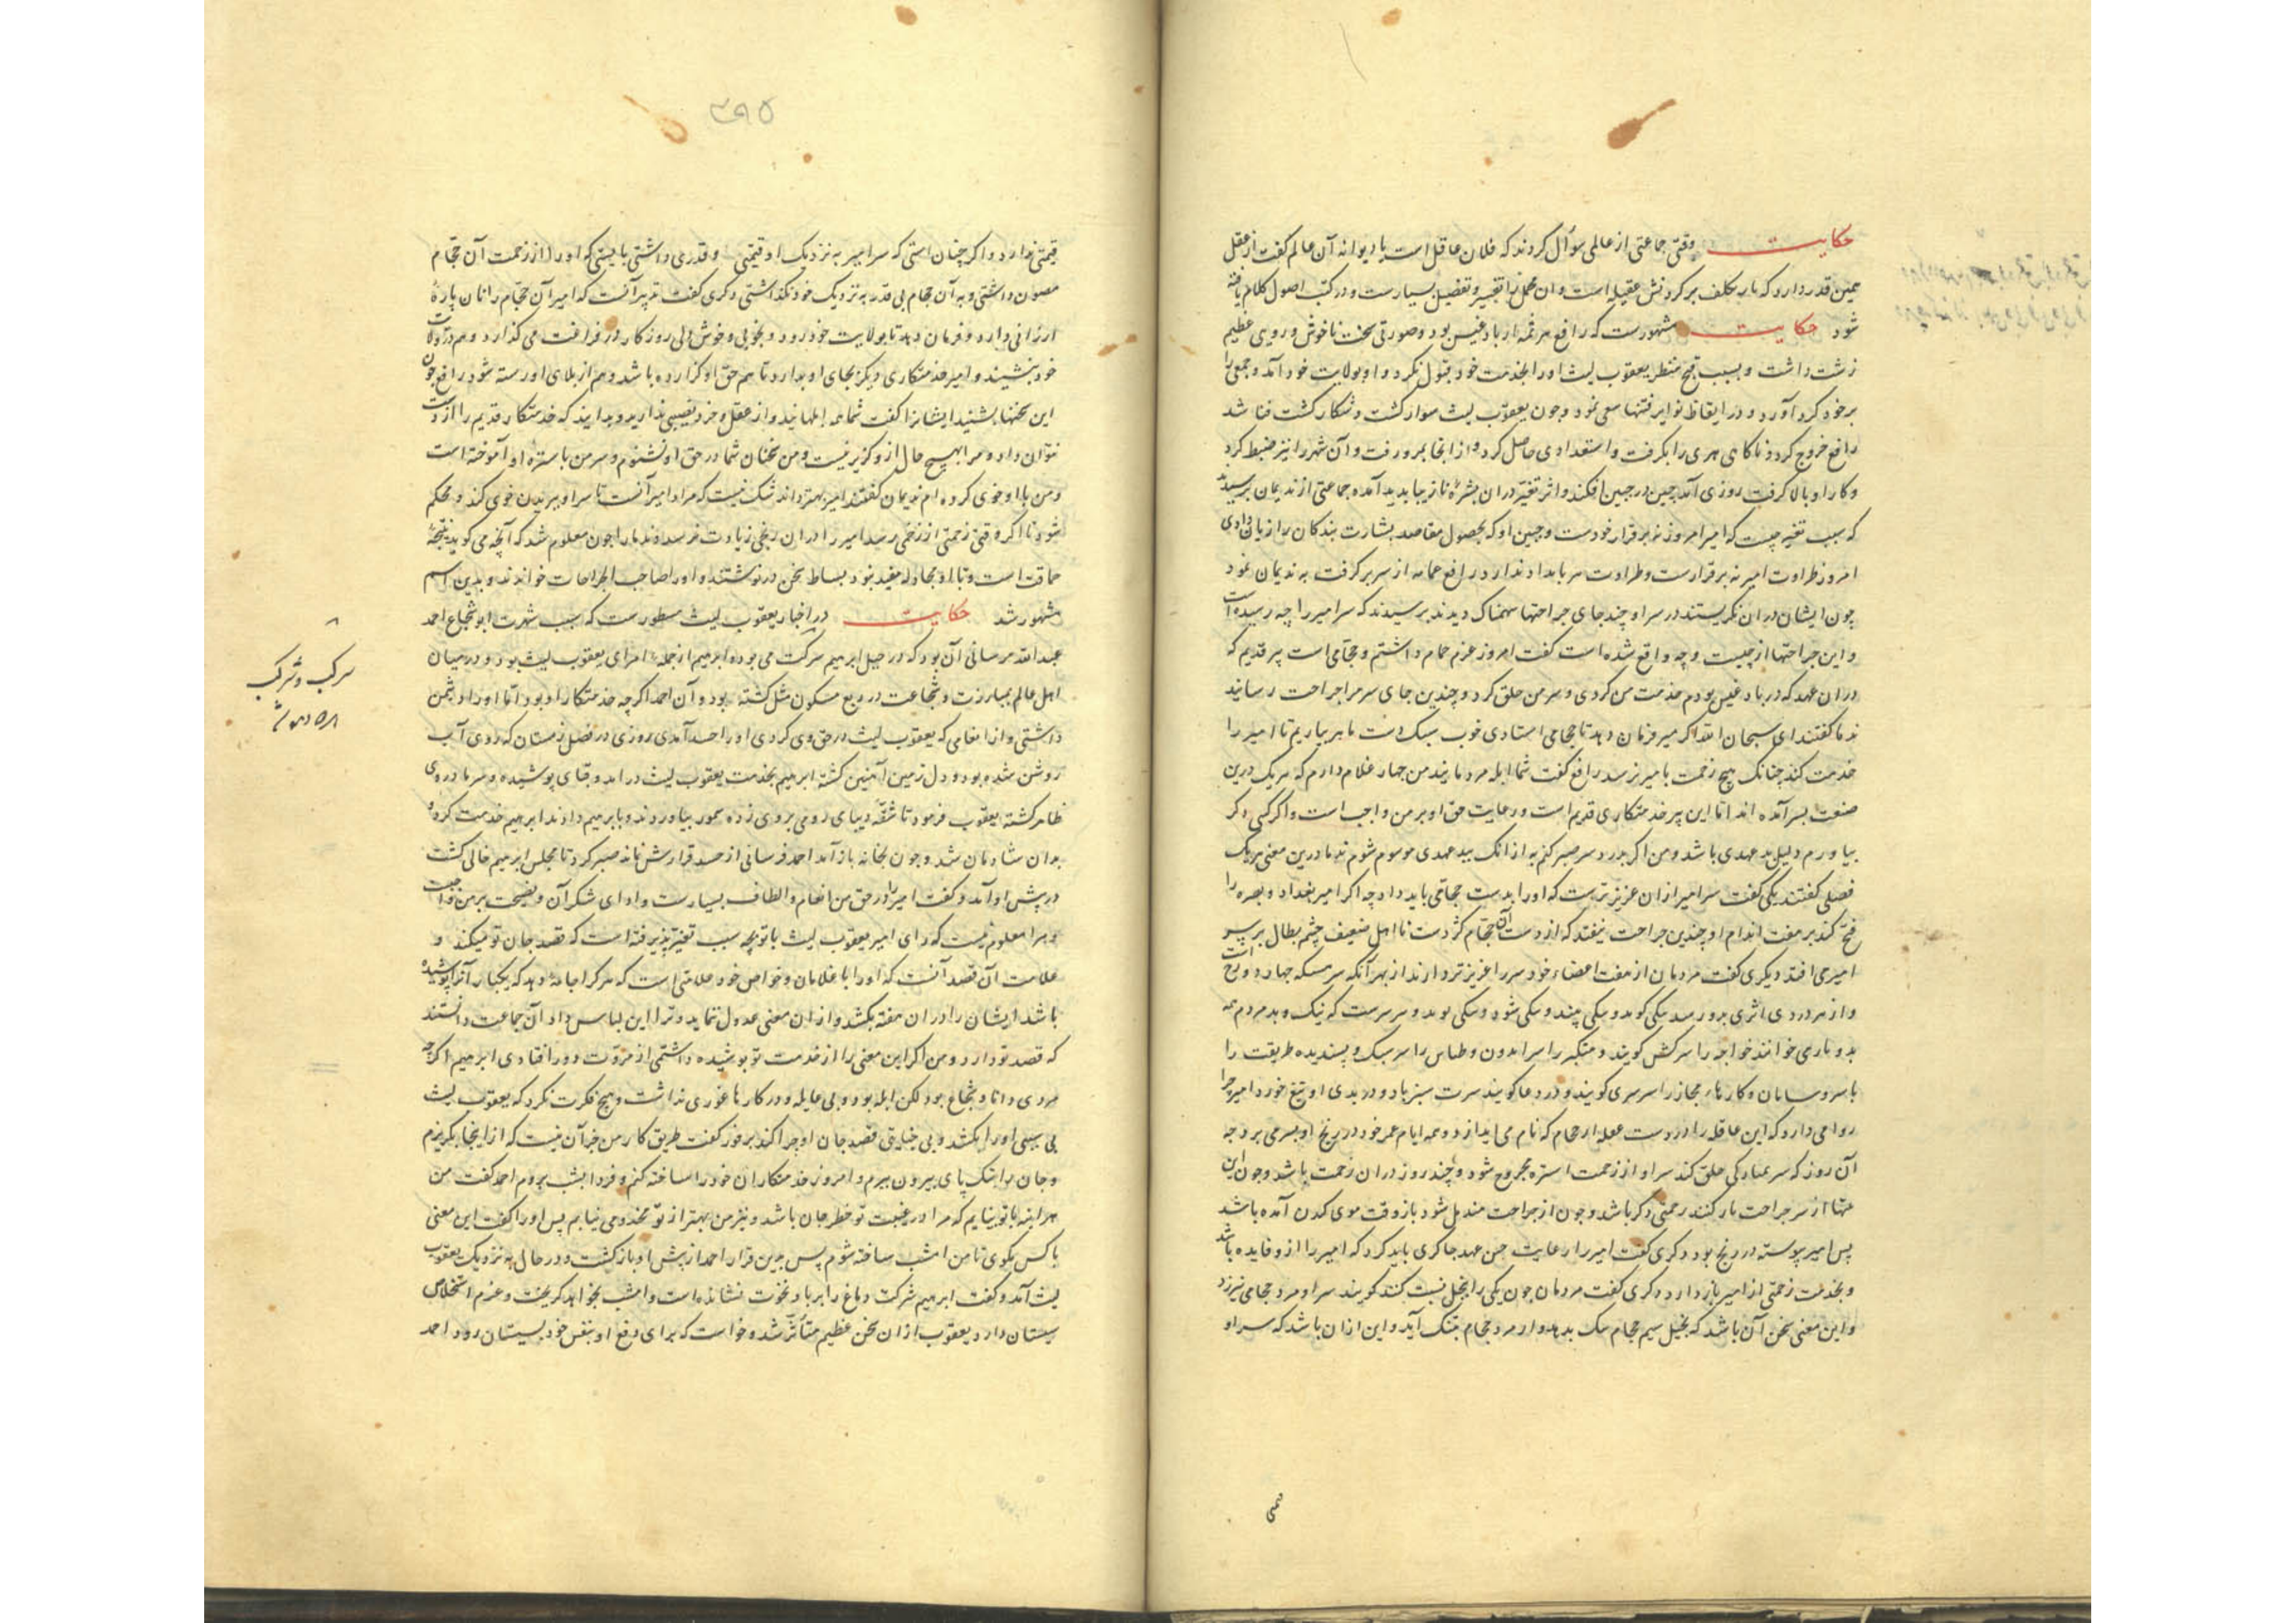 حکایت وقتی جماعتی از عالمی سوآل کردند که فلان عاقل است یا دیوانه آن عالم کفت از عقل
همین قدر دارد که بار تکلف بر کردنش عقیله است و ان مجمل را تفسیر و تفضیل بسیارست و در کتب اصول کلام یافته
شود حکایت مشهورست که رافع هرثمه از بادغیس بود و صورتی سخت ناخوش و رویی عظیم
زشت داشت و بسبب قبح منظر یعقوب لیث اورا بخدمت خود قبول نکرد و او بولایت خود آمد و جمعی را
بر خود کرد آورد و در ایقاظ نوایر فتنها سعی نمود و چون یعقوب لیث سوار کشت و شکار کشت فنا شد
رافع خروج کرد و ناکاهی هری را بکرفت و استعدادی حاصل کرد و از انجا بمرو رفت و آن شهر را نیز ضبط کرد
و کار او بالا کرفت روزی آمد چین در جبین افکند و اثر تغیر در ان بشره نازیبا بدید آمده جماعتی از ندیمان برسیدند
که سبب تغیر چیست که امیر امروز نه بر قرار خودست و جبین او که بحصول مقاصد بشارت بندکان را زبان دادی
امروز طراوت امیر نه بر قرارست و طراوت هر بامداد ندارد رافع عمامه از سر بر کرفت به ندیمان نمود
چون ایشان در ان نکریستند در سر او چند جای جراحتها سهمناک دیدند برسیدند که سر امیر را چه رسیده است
و این جراحتها از چیست و چه واقع شده است کفت امروز عزم حمام داشتم و حجامی است پیر قدیم که
در ان عهد که در بادغیس بودم خدمت من کردی و سر من حلق کرد و چندین جای سر مرا جراحت رسانید
ندما کفتند ای سبحان الله اکر میر فرمان دهد تا حجامی استادی خوب سبک دست ماهر بیاریم تا امیر را
خدمت کند چنانک هیچ زحمت بامیر نرسد رافع کفت شما ابله مردمانید من چهار غلام دارم که هریک درین
صنعت بسر آمده اند اما این پیر خدمتکاری قدیم است و رعایت حق او بر من واجب است و اکر کسی دکر
بیاورم دلیل بد عهدی باشد و من اکر بدرد سر صبر کنم به از انک ببد عهدی موسوم شوم ندما درین معنی هریک
فصلی کفتند یکی کفت سر امیر از ان عزیزترست که او را بدست حجامی باید داد چه اکر امیر بغداد و بصره را
فتح کند بر هفت اندام او چندین جراحت نیفتد که از دست آن حجام کژ دست نا اهل ضعیف چشم بطال بر سر
امیر می افتد دیکری کفت مردمان از هفت اعضاء خود سر را عزیزتر دارند از بهر آنکه سر
و از هر دردی اثری برو رسد یکی کوید و یکی بیند و یکی شنود و یکی بوید و سر سرست که نیک و بد مردم همه
بدو باز می خوانند خواجه را سرکش کویند و متکبر را سر و پسندیده طریقت را
با سر و سامان و کارهاء مجاز را سرسری کویند و در دعا کویند سرت سبز باد و در بدی او تیغ خورد امیر چرا
روا می دارد که این عاقله را در دست حجام که نام می اندازد و همه ایام عمر خود در رنج او بسر می برد چه
آن روز که سر مبارک حلق کند سر او از زحمت استره مجروح شود و چند روز در ان زحمت باشد و چون این
از سر جراحت باز کنند زحمتی دکر باشد و چون از جراحت مندمل شود باز وقت موی کندن آمده باشد
پس امیر پیوسته در رنج بود دکری کفت امیر را رعایت حسن عهد چاکری باید کرد که امیر را ازو فایده باشد
و بخدمت زحمتی از امیر باز دارد دکری کفت مردمان چون یکی را ببخل نسبت کنند کویند سر او مزد حجامی نیرزد
و این معنی سخن آن باشد که بخیل سیم حجام بدهد و از مزد حجام تنک آید و این از ان باشد که سر او
قیمتی ندارد و اکر چنان استی که سر امیر به نزدیک او قیمتی و قدری داشتی بایستی که اورا از زحمت آن حجام
مصون داشتی و به آن حجام بی قدر به نزدیک خود نکذاشتی دکری کفت تدبیر آنست که امیر آن حجام را نان پارهٔ
ارزانی دارد و فرمان دهد تا بولایت خود رود و بخوبی و خوش دلی روزکار در فراغت می کذارد و هم در ولایت
خود بنشیند و امیر خدمتکاری دیکر بجای او بدارد تا هم حق او کزارده باشد و هم از بلای او رسته شود رافع چون
این سخنها بشنید ایشانرا کفت شما همه ابلهانید و از عقل و خرد نصیبی ندارید و بدانید که خدمتکار قدیم را از دست
نتوان داد و مرا بهیچ حال ازو کزیر نیست و من سخنان شما در حق او نشنوم و سر من با استره او آموخته است
و من با او خوی کرده ام ندیمان کفتند امیر بهتر داند شک نیست که مراد امیر آنست تا سر او ببریدن خوی کند و محکم
شود تا اکر وقتی زحمتی از زخمی برسد امیر را در ان رنجی زیادت نرسد ندما را چون معلوم شد که آنچه می کوید نتیجهٔ
حماقت است و با او مجادله مفید نبود بساط سخن درنوشتند و او را صاحب الجراحات خواندند و بدین اسم
مشهور شد حکایت در اخبار یعقوب لیث مسطورست که سبب شهرت ابو شجاع احمد
عبد الله خرسانی آن بود که در خیل ابرهیم سرکت می بود و ابرهیم از جملهٔ امرای یعقوب لیث بود و در میان
اهل عالم بمبارزت و شجاعت در ربع مسکون مثل کشته بود و آن احمد اکرچه خدمتکار او بود اما او را دشمن
داشتی و از انعامی که یعقوب لیث در حق وی کردی او را حسد آمدی روزی در فصل زمستان که روی آب
روشن شده بود و دل زمین آهنین کشته ابرهیم بخدمت یعقوب لیث درامد و قبای پوشیده و سرما در وی
ظاهر کشته یعقوب فرمود تا شقهٔ دیبای رومی بروی زده سمور بیاوردند و بابرهیم دادند ابرهیم خدمت کرد
بدان شادمان شد و چون بخانه باز آمد احمد خرسانی از حسد قرارش نماند صبر کرد تا مجلس ابرهیم خالی کشت
در پیش او آمد و کفت امیر را در حق من انعام و الطاف بسیارست و ادای شکر آن و نصیحت بر من واجبست
و مرا معلوم نیست که رای امیر یعقوب لیث با تو بچه سبب تغیر پذیرفته است که قصد جان تو میکند و
علامت آن قصد آنست که او را با غلامان و خواص خود علامتی است که هر کرا جامهٔ دهد که یکبار آنرا پوشیده
باشد ایشان را در ان هفته بکشد و از ان معنی عدول ننماید و ترا این لباس داد آن جماعت دانستند
که قصد تو دارد و من اکر این معنی را از خدمت تو پوشیده داشتمی از مروت دور افتادی ابرهیم اکرچه
مردی دانا و شجاع بود لکن ابله بود و بی عایله و در کارها غوری نداشت و هیچ فکرت نکرد که یعقوب لیث
بی سببی اورا بکشد و بی خیانتی قصد جان او چرا کند برفور کفت طریق کار من جز آن نیست که از اینجا بکریزم
و جان را بتک پای بیرون برم و امروز خدمتکاران خود را ساخته کنم و فردا بشب بروم احمد کفت من
هرآینه با تو بیایم که مرا در غیبت تو خطر جان باشد و نیز من بهتر از تو مخدومی نیابم پس اورا کفت این معنی
با کس مکوی تا من امشب ساخته شوم پس بدین قرار احمد از پیش او بازکشت و در حال به نزدیک یعقوب
لیث آمد و کفت ابرهیم شرکت دماغ را بر باد نخوت نشانده است و امشب بخواهد کریخت و عزم استخلاص
سیستان دارد یعقوب از ان سخن عظیم متأثر شد و خواست که برای دفع او بنفس خود بسیستان رود احمد
سرکب و شرکب
۳۹۵